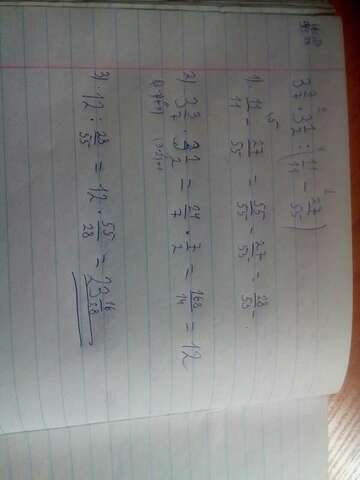 3 3/7 · 3 1/2 : (11/11 - 27/55)
1) 11/11 - 27/55 = 55/55 - 27/55 = 28/55
2) 3 3/7 · 3 1/2 = 24/7 · 7/2 = 168/14 = 12
3) 12 : 28/55 = 12 · 55/28 = 23 16/28